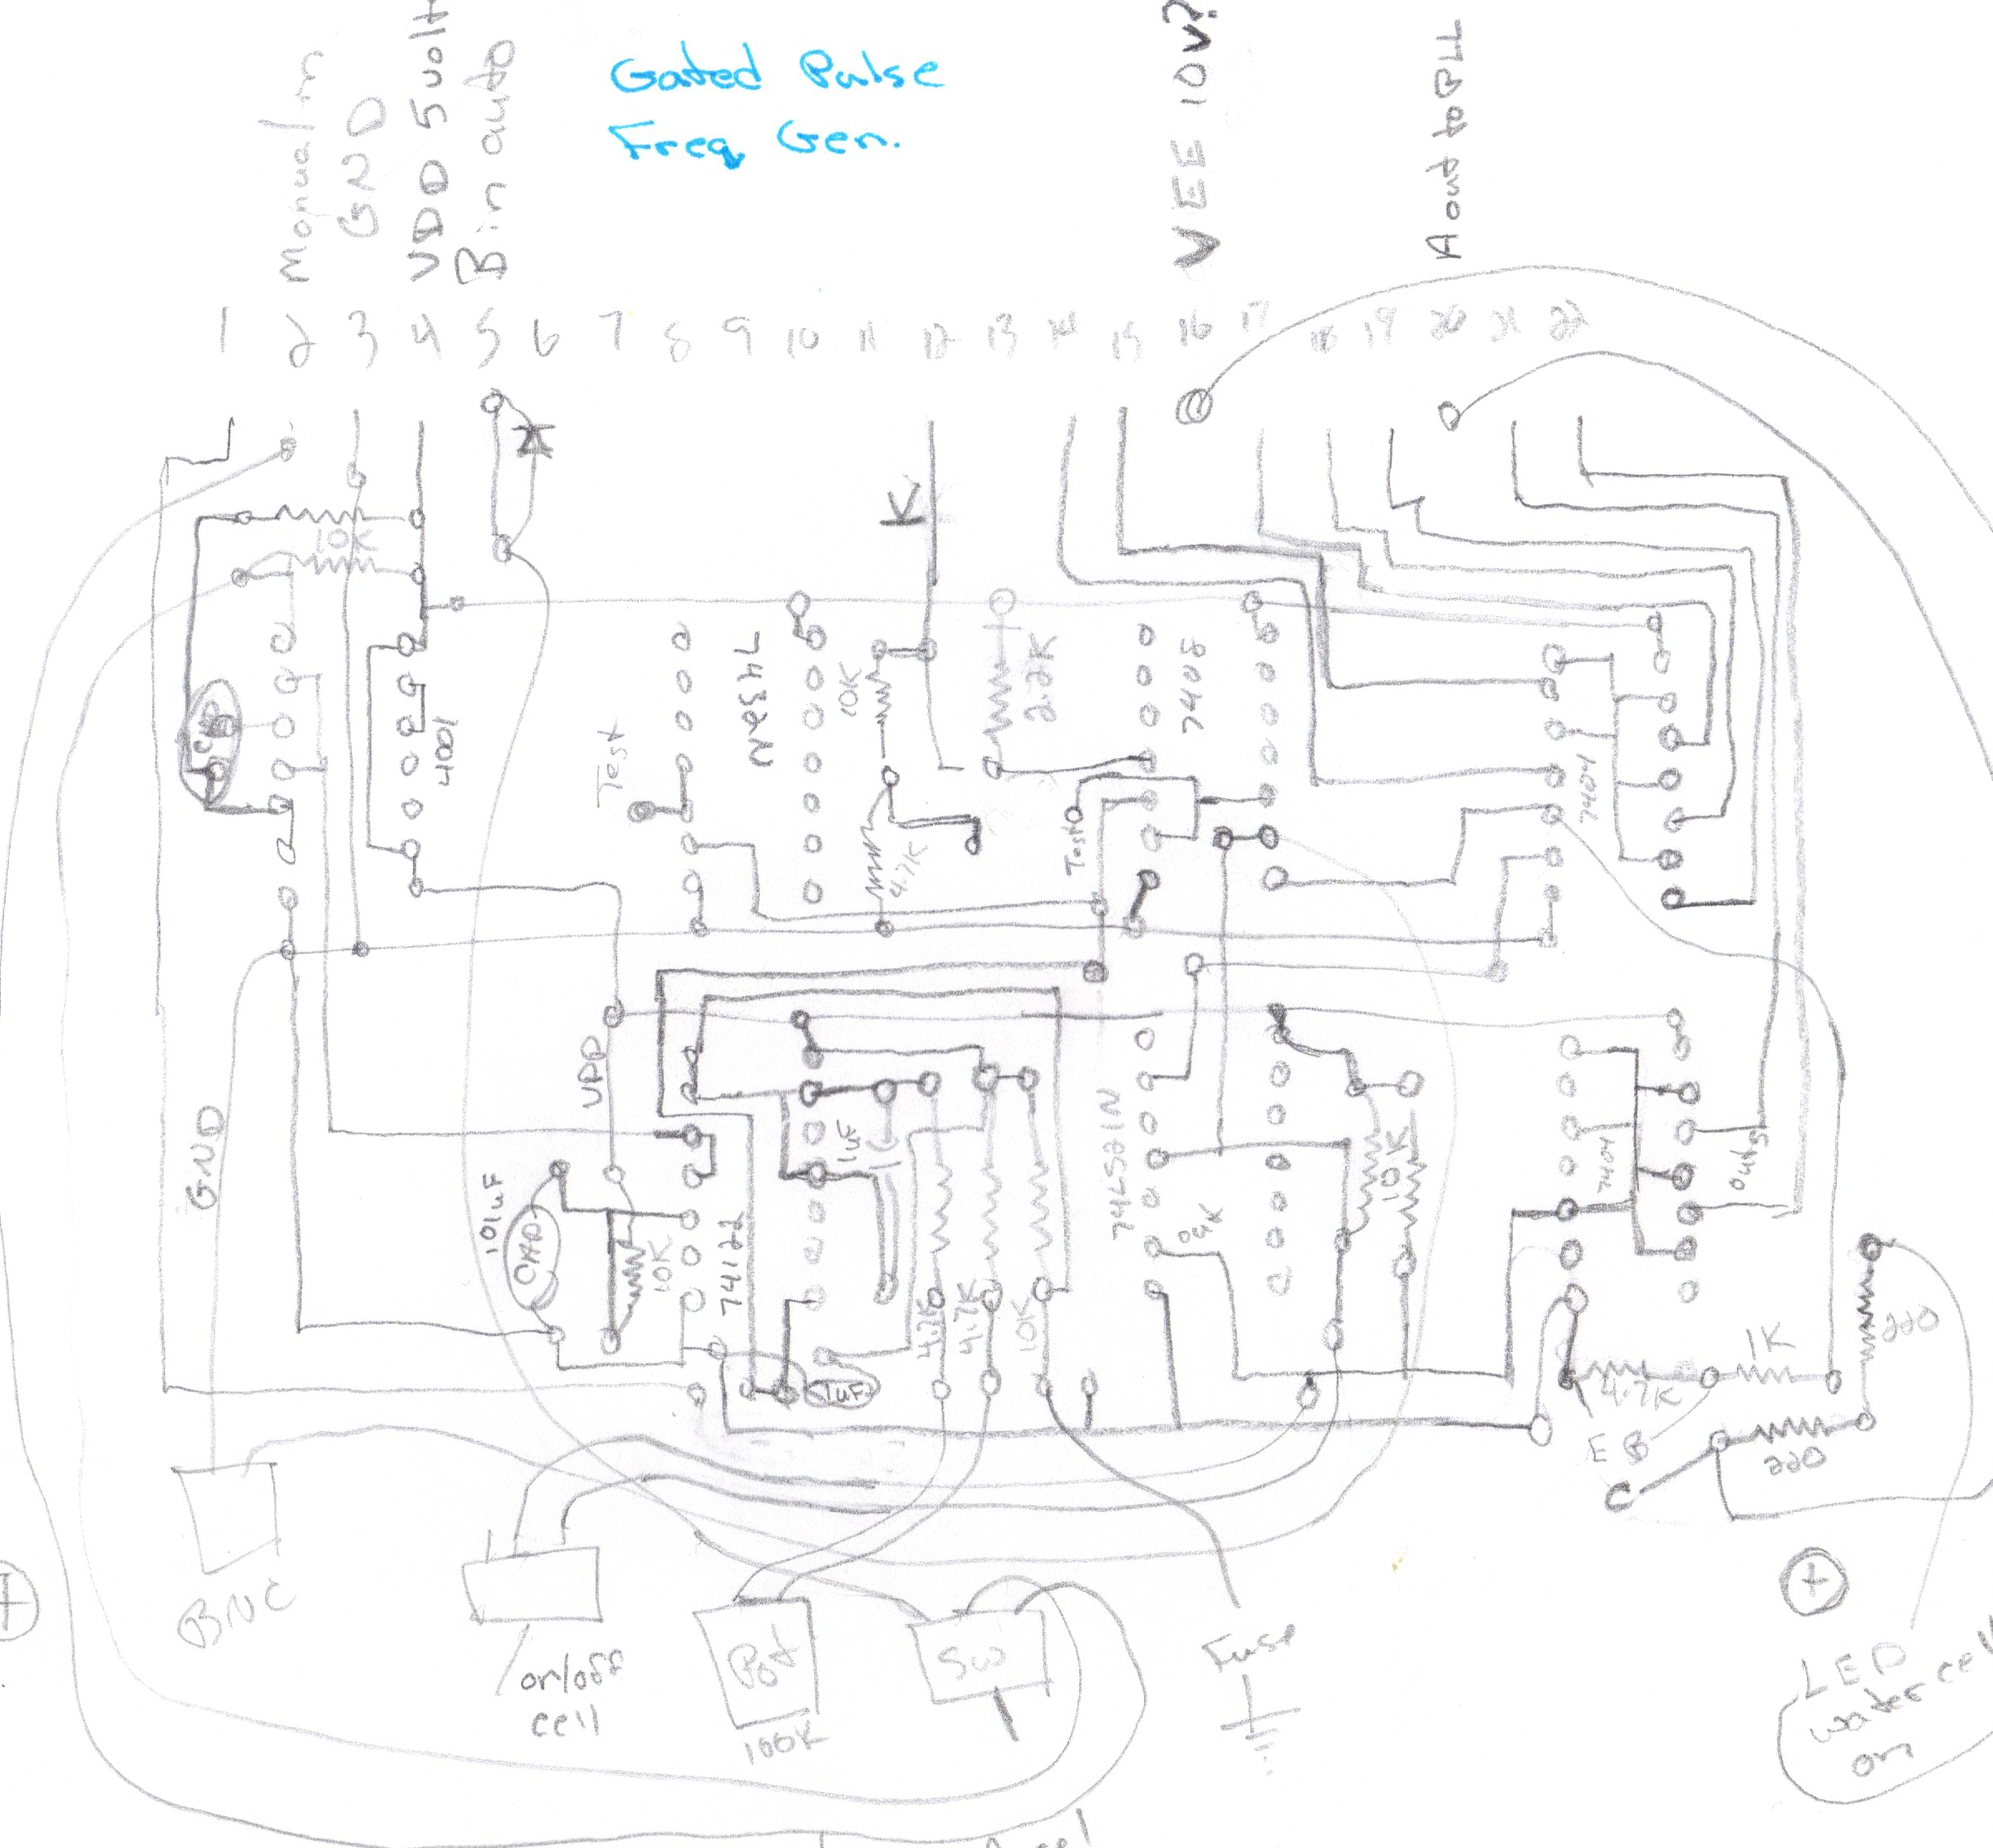 Gated Pulse
Freq Gen.
Manual in
GND
VDD 5volt
B in auto
VEE 10V?
A out to PLL
1 2 3 4 5 6 7 8 9 10 11 12 13 14 15 16 17 18 19 20 21 22
K
10K
4001
Test
10K
2.2K
7408
7404
4.7K
Test
GND
VDD
.01uF
10K
74122
1uF
1uF
4.7K
10K
74LS221N
10K
7404
outs
220
1K
4.7K
E B
C
220
BNC
on/off
cell
Pot
100K
SW
Fuse
+
+
LED
water cell
on